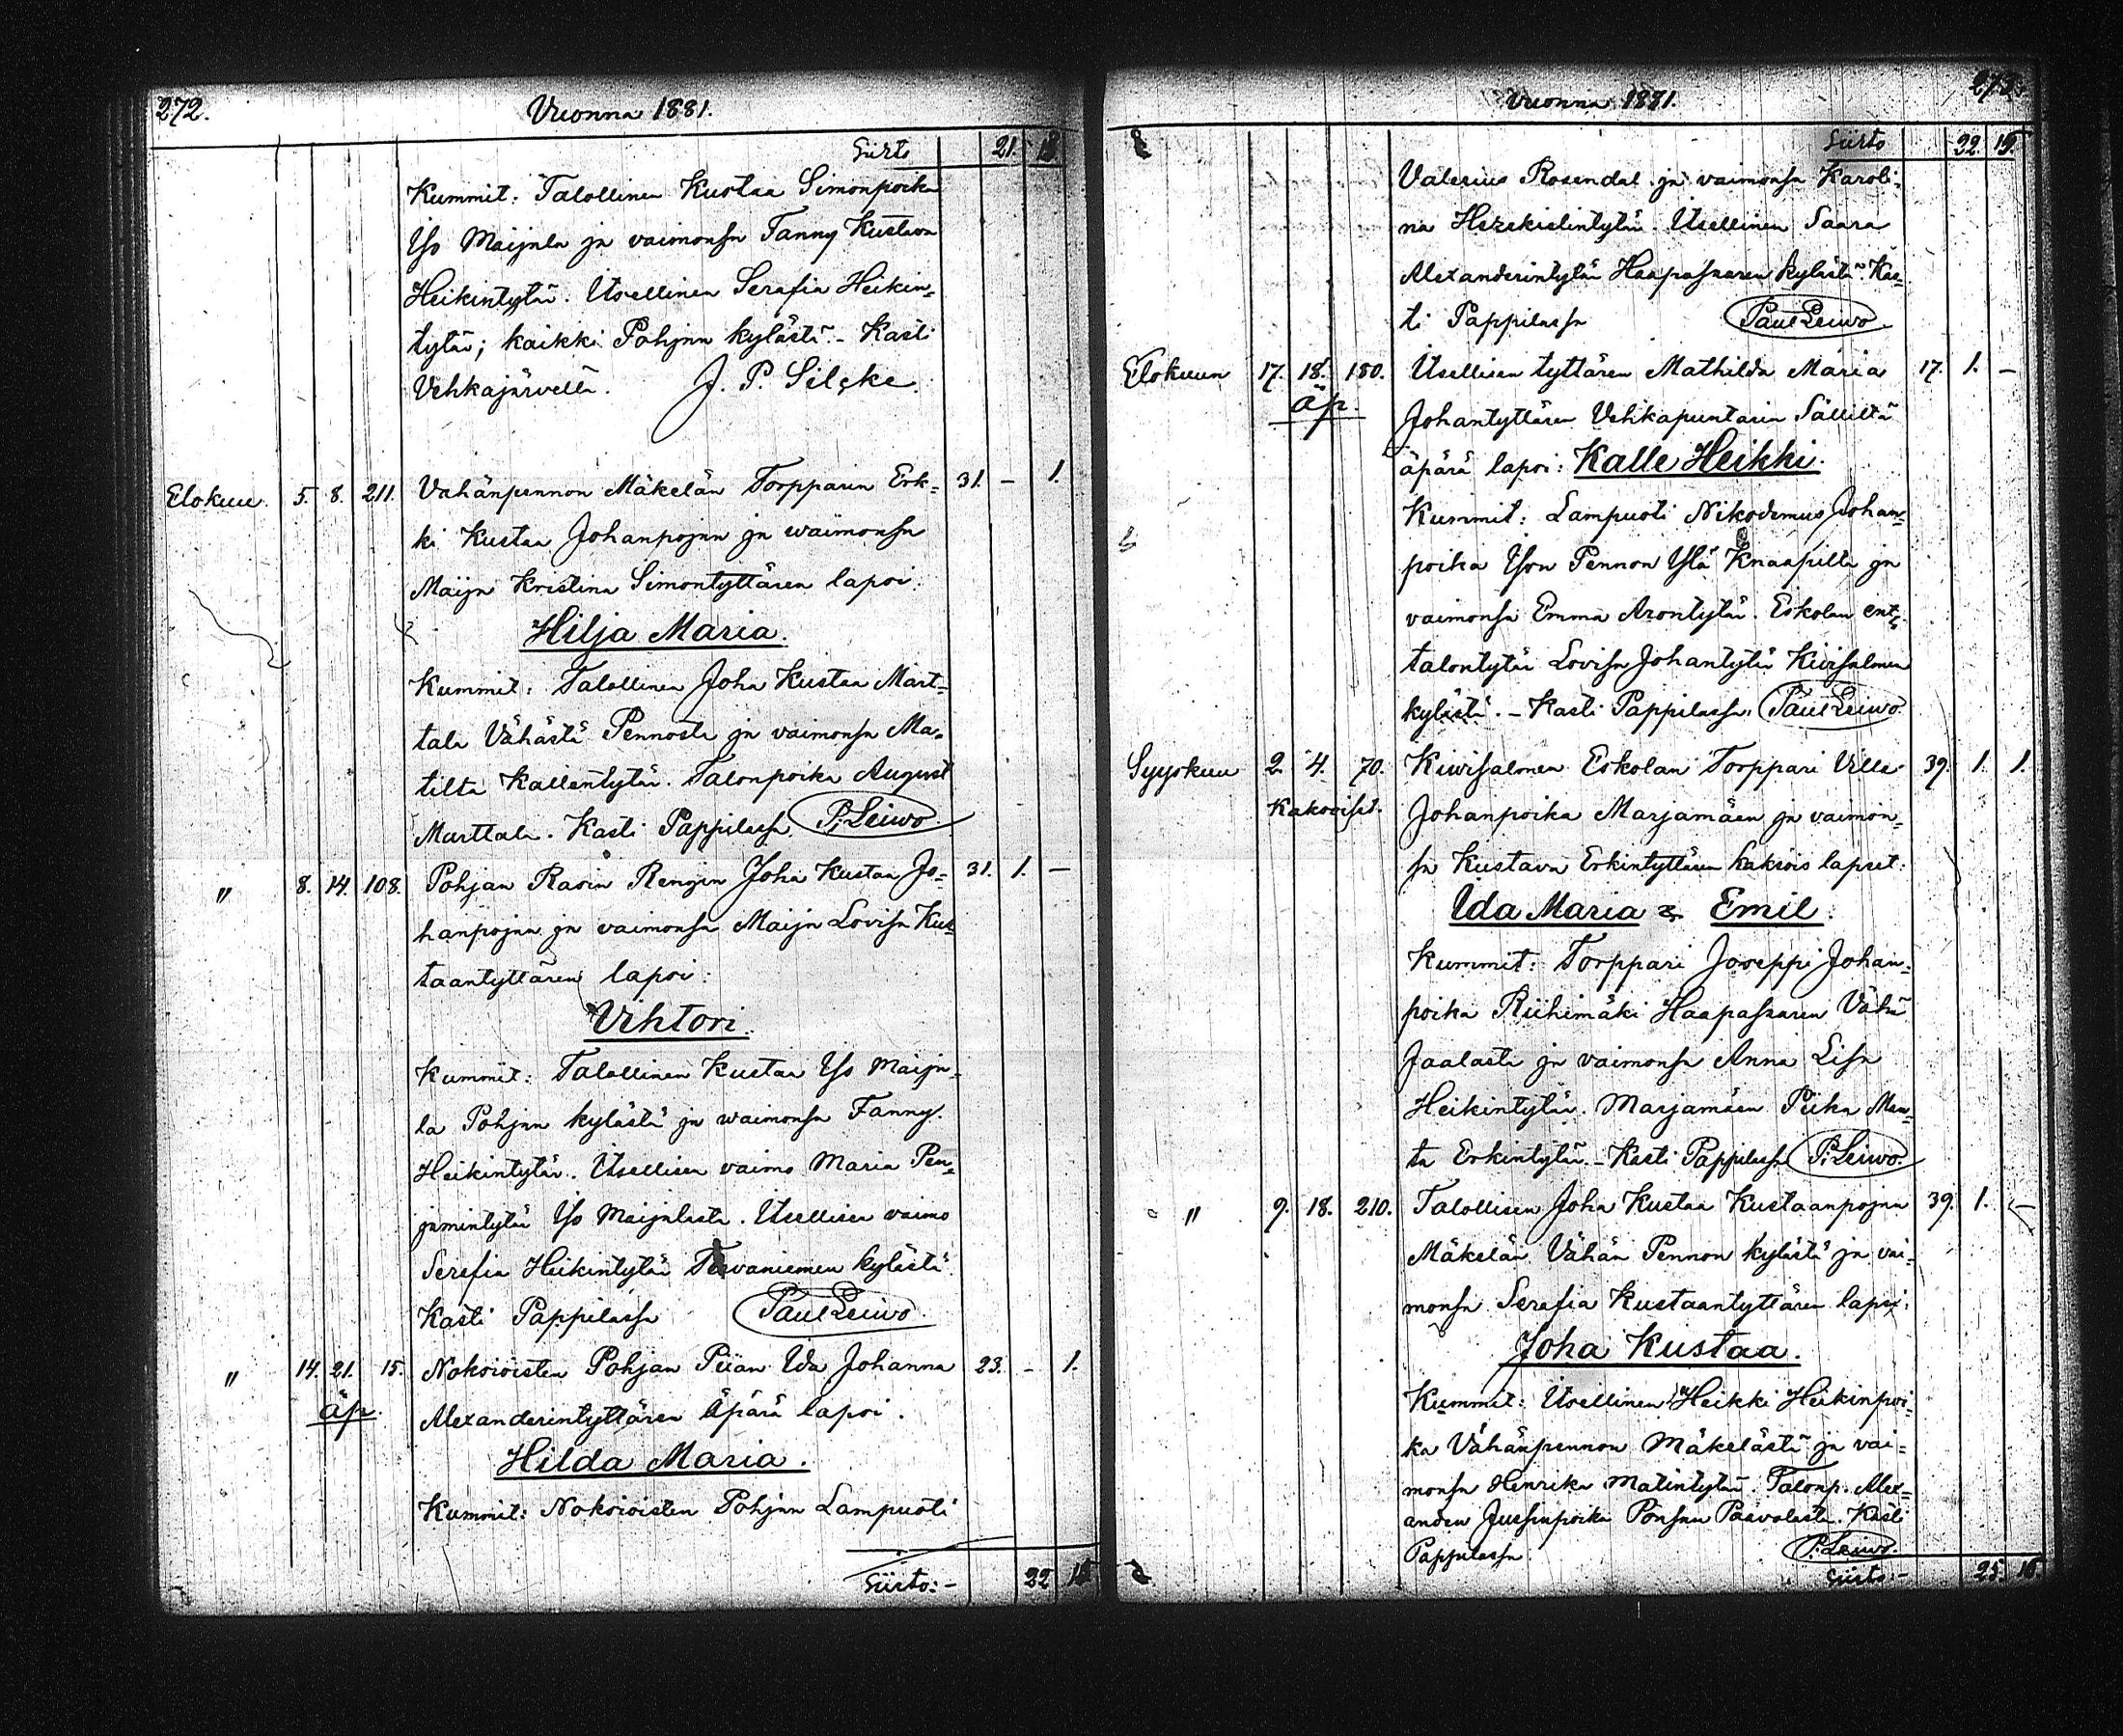 272.
Vuonna 1881.
Siirto 21. 18.
Kummit: Talollinen Kustaa Simonpoika
Iso Maijala ja vaimonsa Fanny Kustava
Heikintytär. Itsellinen Serafia Heikin-
tytär; kaikki Pohjan kylästä. - Kasti
Vehkajärvellä. J. P. Silcke.
Elokuu. 5. 8. 211. Vahänpennon Mäkelän Torpparin Erk- 31. - 1.
ki Kustaa Johanpojan ja waimonsa
Maija Kristina Simontyttären lapsi:
Hilja Maria.
Kummit: Talollinen Joha Kustaa Mart-
tala Vähästä Pennosta ja vaimonsa Ma-
tilta Kallentytär. Talonpoika August
Marttala. Kasti Pappilassa P. Leiwo.
" 8. 14. 108. Pohjan Rasin Rengin Joha Kustaa Jo- 31. 1. -
hanpojan ja vaimonsa Maija Lovisa Kus-
taantyttären lapsi:
Vihtori.
Kummit: Talollinen Kustaa Iso Maija-
la Pohjan kylästä ja waimonsa Fanny
Heikintytär. Itsellisen vaimo Maria Pen-
jamintytär Iso Maijalasta. Itsellisen vaimo
Serafia Heikintytär Tervaniemen kylästä.
Kasti Pappilassa Paul Leiwo
" 14. 21. 15. Nokoisten Pohjan Piian Ida Johanna 23. - 1.
Äp. Alexanderintyttären Äpärä lapsi.
Hilda Maria.
Kummit: Nokoisten Pohjan Lampuoti
Siirto:- 22
273.
Vuonna 1881.
Siirto 22. 19.
Valerius Rosendal ja vaimonsa Karoli-
na Hezekielintytär. Itsellinen Saara
Alexanderintytär Haapasaaren kylästä. Kas-
ti Pappilassa Paul Leiwo
Elokuun 17. 18. 180. Itsellisen tyttären Mathilda Maria 17. 1. -
Äp. Johantyttären Vehkapuntarin Sälliltä
äpärä lapsi: Kalle Heikki.
Kummit: Lampuoti Nikodemus Johan-
poika Ison Pennon Ylä Knaapilta ja
vaimonsa Emma Arontytär. Eskolan ent.
talontytär Lovisa Johantytär Kivisalmen
kylästä. - Kasti Pappilassa. Paul Leiwo
Syyskuu 2. 4. 70. Kiwisalmen Eskolan Torppari Ville 39. 1. 1.
Kakoisit. Johanpoika Marjamäen ja vaimon-
sa Kustava Erkintyttären kaksois lapset:
Ida Maria & Emil.
Kummit: Torppari Joseppi Johan-
poika Riihimäki Haapasaaren Vähä
Jaalasta ja vaimonsa Anna Lisa
Heikintytär. Marjamäen Piika Man-
ta Erkintytär. - Kasti Pappilassa P. Leiwo.
" 9. 18. 210. Talollisen Joha Kustaa Kustaanpojan 39. 1. -
Mäkelän Vähän Pennon kylästä ja vai-
monsa Serafia Kustaantyttären lapsi:
Joha Kustaa.
Kummit: Itsellinen Heikki Heikinpoi-
ka Vähänpennon Mäkelästä ja vai-
monsa Henrika Matintytär. Talonp. Alex-
ander Jussinpoika Ponsan Paavolasta. Kasti
Pappilassa. P. Leiwo.
Siirto:- 25. 16